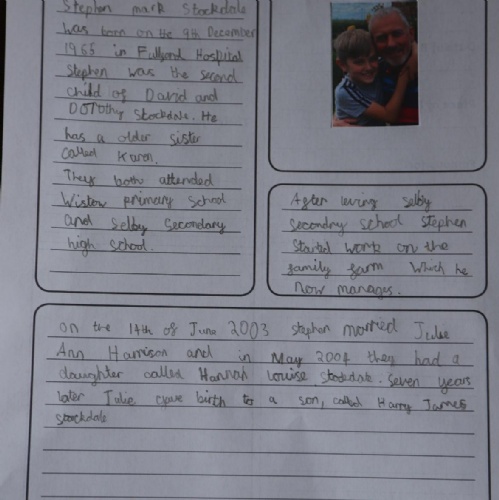 Stephen mark Stockdale
was born on the 9th December
1965 in Fulford Hospital
Stephen was the second
child of David and
DOrothy Stockdale. He
has a older sister
called Karen.
They both attended
Wistow primary school
and Selby Secondary
high school.
After leving selby
secondry school Stephen
Started work on the
family farm which he
now manages.
on the 14th of June 2003 stephen married Julie
Ann Harrison and in May 2004 they had a
daughter called Hannah Louise stockdale. Seven years
later Julie gave birth to a son, called Harry James
stockdale